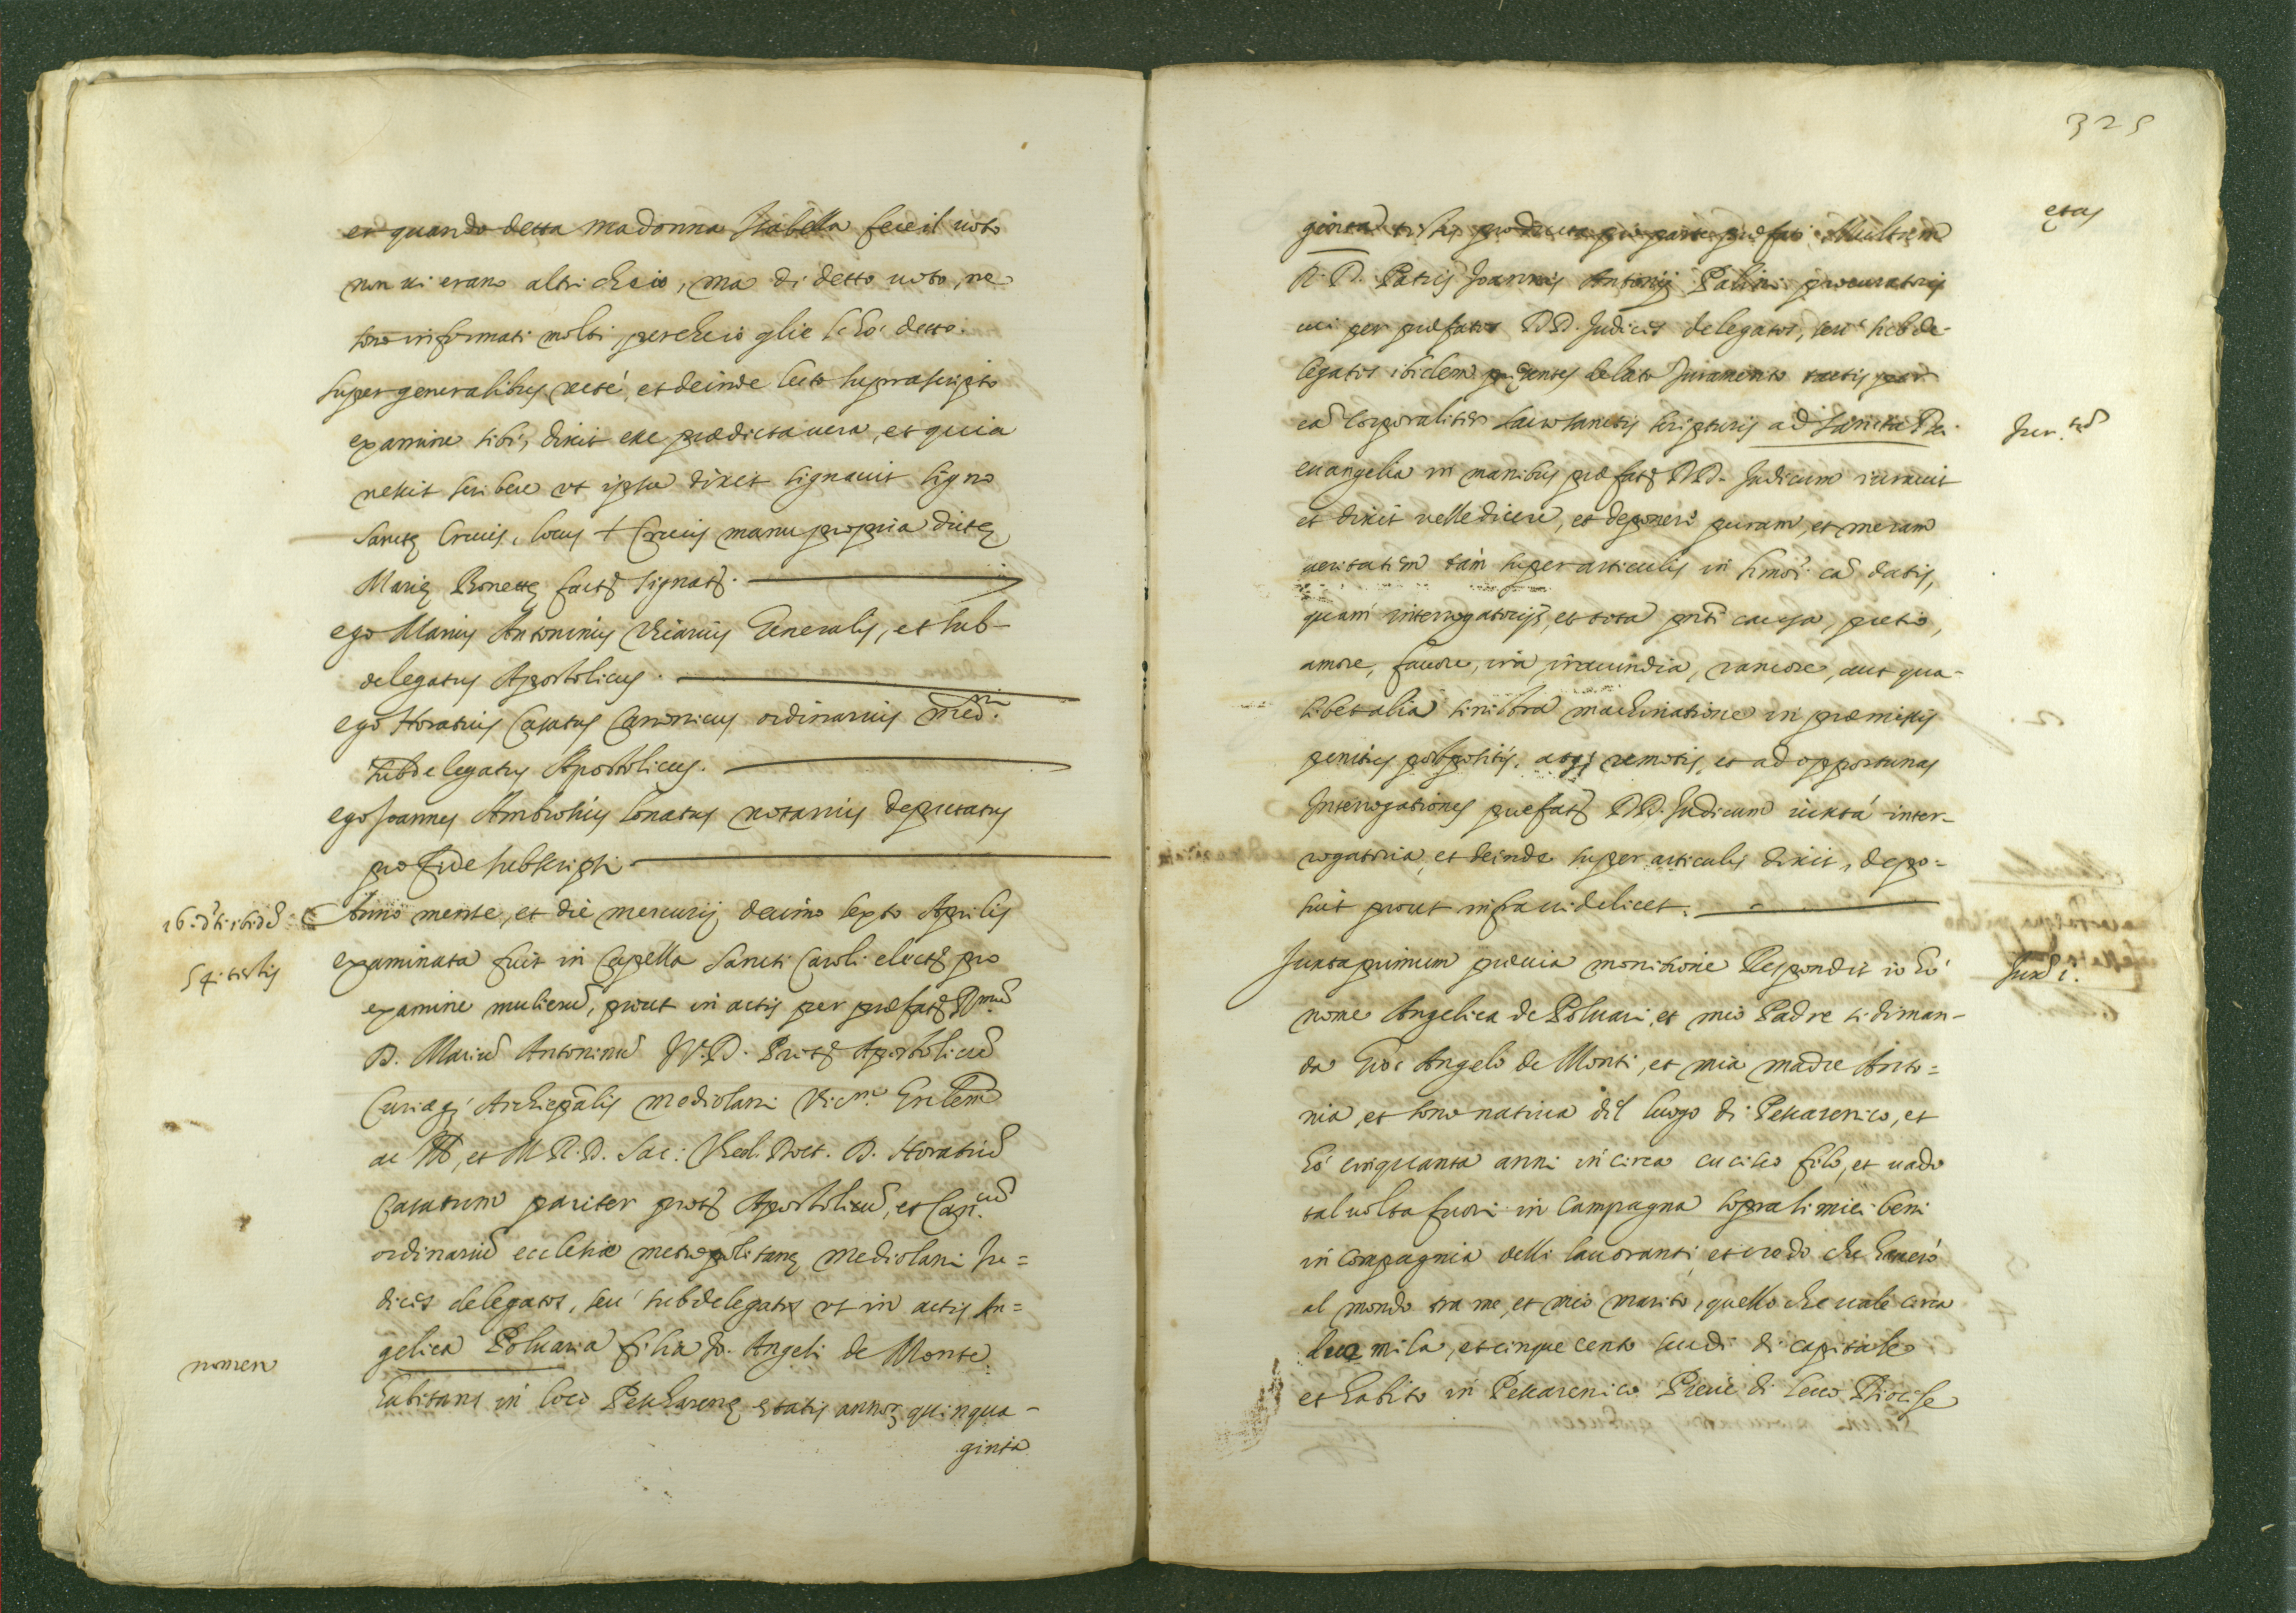 et quando detta madonna Isabella fece il voto
non vi erano altri che io, ma di detto voto, ne
sono informati molti perche io glie l'hò detto.
super generalibus recté, et deinde lecto suprascripto
examine sibi, dixit esse prædicta vera, et quia
nescit scribere ut ipsa dixit signavit signo
Sanctę Crucis, locus + Crucis manu propria dictę
Marię Bonettę sact. signat.
ego Marius Antoninus Vicarius Generalis, et sub-
delegatus Apostolicus.
ego Horatius Casatus Canonicus ordinarius Med.ni
subdelegatus Apostolicus.
ego Joannes Ambrosius Lonatus notarius deputatus
pro fide subscripsi
Anno mense, et die mercurij decimo sexto Aprilis
54. testis
examinata fuit in Capella Sancti Caroli electa pro
examine mulierū, prout in actis per præfat.
D. Mariū Antoninū J.V.D. Prot. Apostolicū
Curiæq; Archiepālis mediolani Vic.m Gnlem
et M. R. D. Sac: Theol. Doct. D. Horatiū
Casatum pariter prot. Apostolicū, et Can.cū
ordinariū ecclesiæ metropolitanę mediolani Ju=
dices delegatos, seu subdelegatos ut in actis An=
gelica Poluaria filia Jo. Angeli de Monte
nomen
habitans in loco Peschareng ętatis annor. quinqua-
ginta
325
ginta testis producta pro parte præfati Multum
etas
R. D. Patris Joannis Antonij Palini procuratoris
cui per præfatos DD. Judices delegatos, seu subde-
legatos ibidem pręsentes delato Juramento tactis per
eā corporaliter sacrosanctis scripturis ad Sancta Dei
Jur.tū
evangelia in manibus præfat. DD. Judicum iuravit
et dixit velle dicere, et deponere puram, et meram
veritatem tàm super articulis in hmōi cā datis,
quàm interrogatorijs, et tota pnti causa, pretio,
amore, favore, ira iracundia, rancore, aut qua-
libet alia sinistra machinatione in præmissis
penitus postpositis, atq; remotis, et ad opportunas
Interrogationes præfat. DD. Judicum iuxtà inter-
rogatoria, et deinde super articulis dixit, depo=
suit prout infra videlicet.
Juxta primum prævia monitione Respondit io hò
Juxā i.
nome Angelica de Poluari, et mio Padre si diman-
da Gio: Angelo de Monti, et mia madre Anto=
nia, et sono nativa dil luogo di Pescarenico, et
hò cinquanta anni in circa cucisco filo, et vado
tal volta fuori in campagna sopra li miei beni
in compagnia delli lavoranti, et credo che haverò
al mondo tra me, et mio marito, quello che vale circa
due mila, et cinque cento scudi di capitale
et habito in Pescarenico Pieve di Lecco Diocise